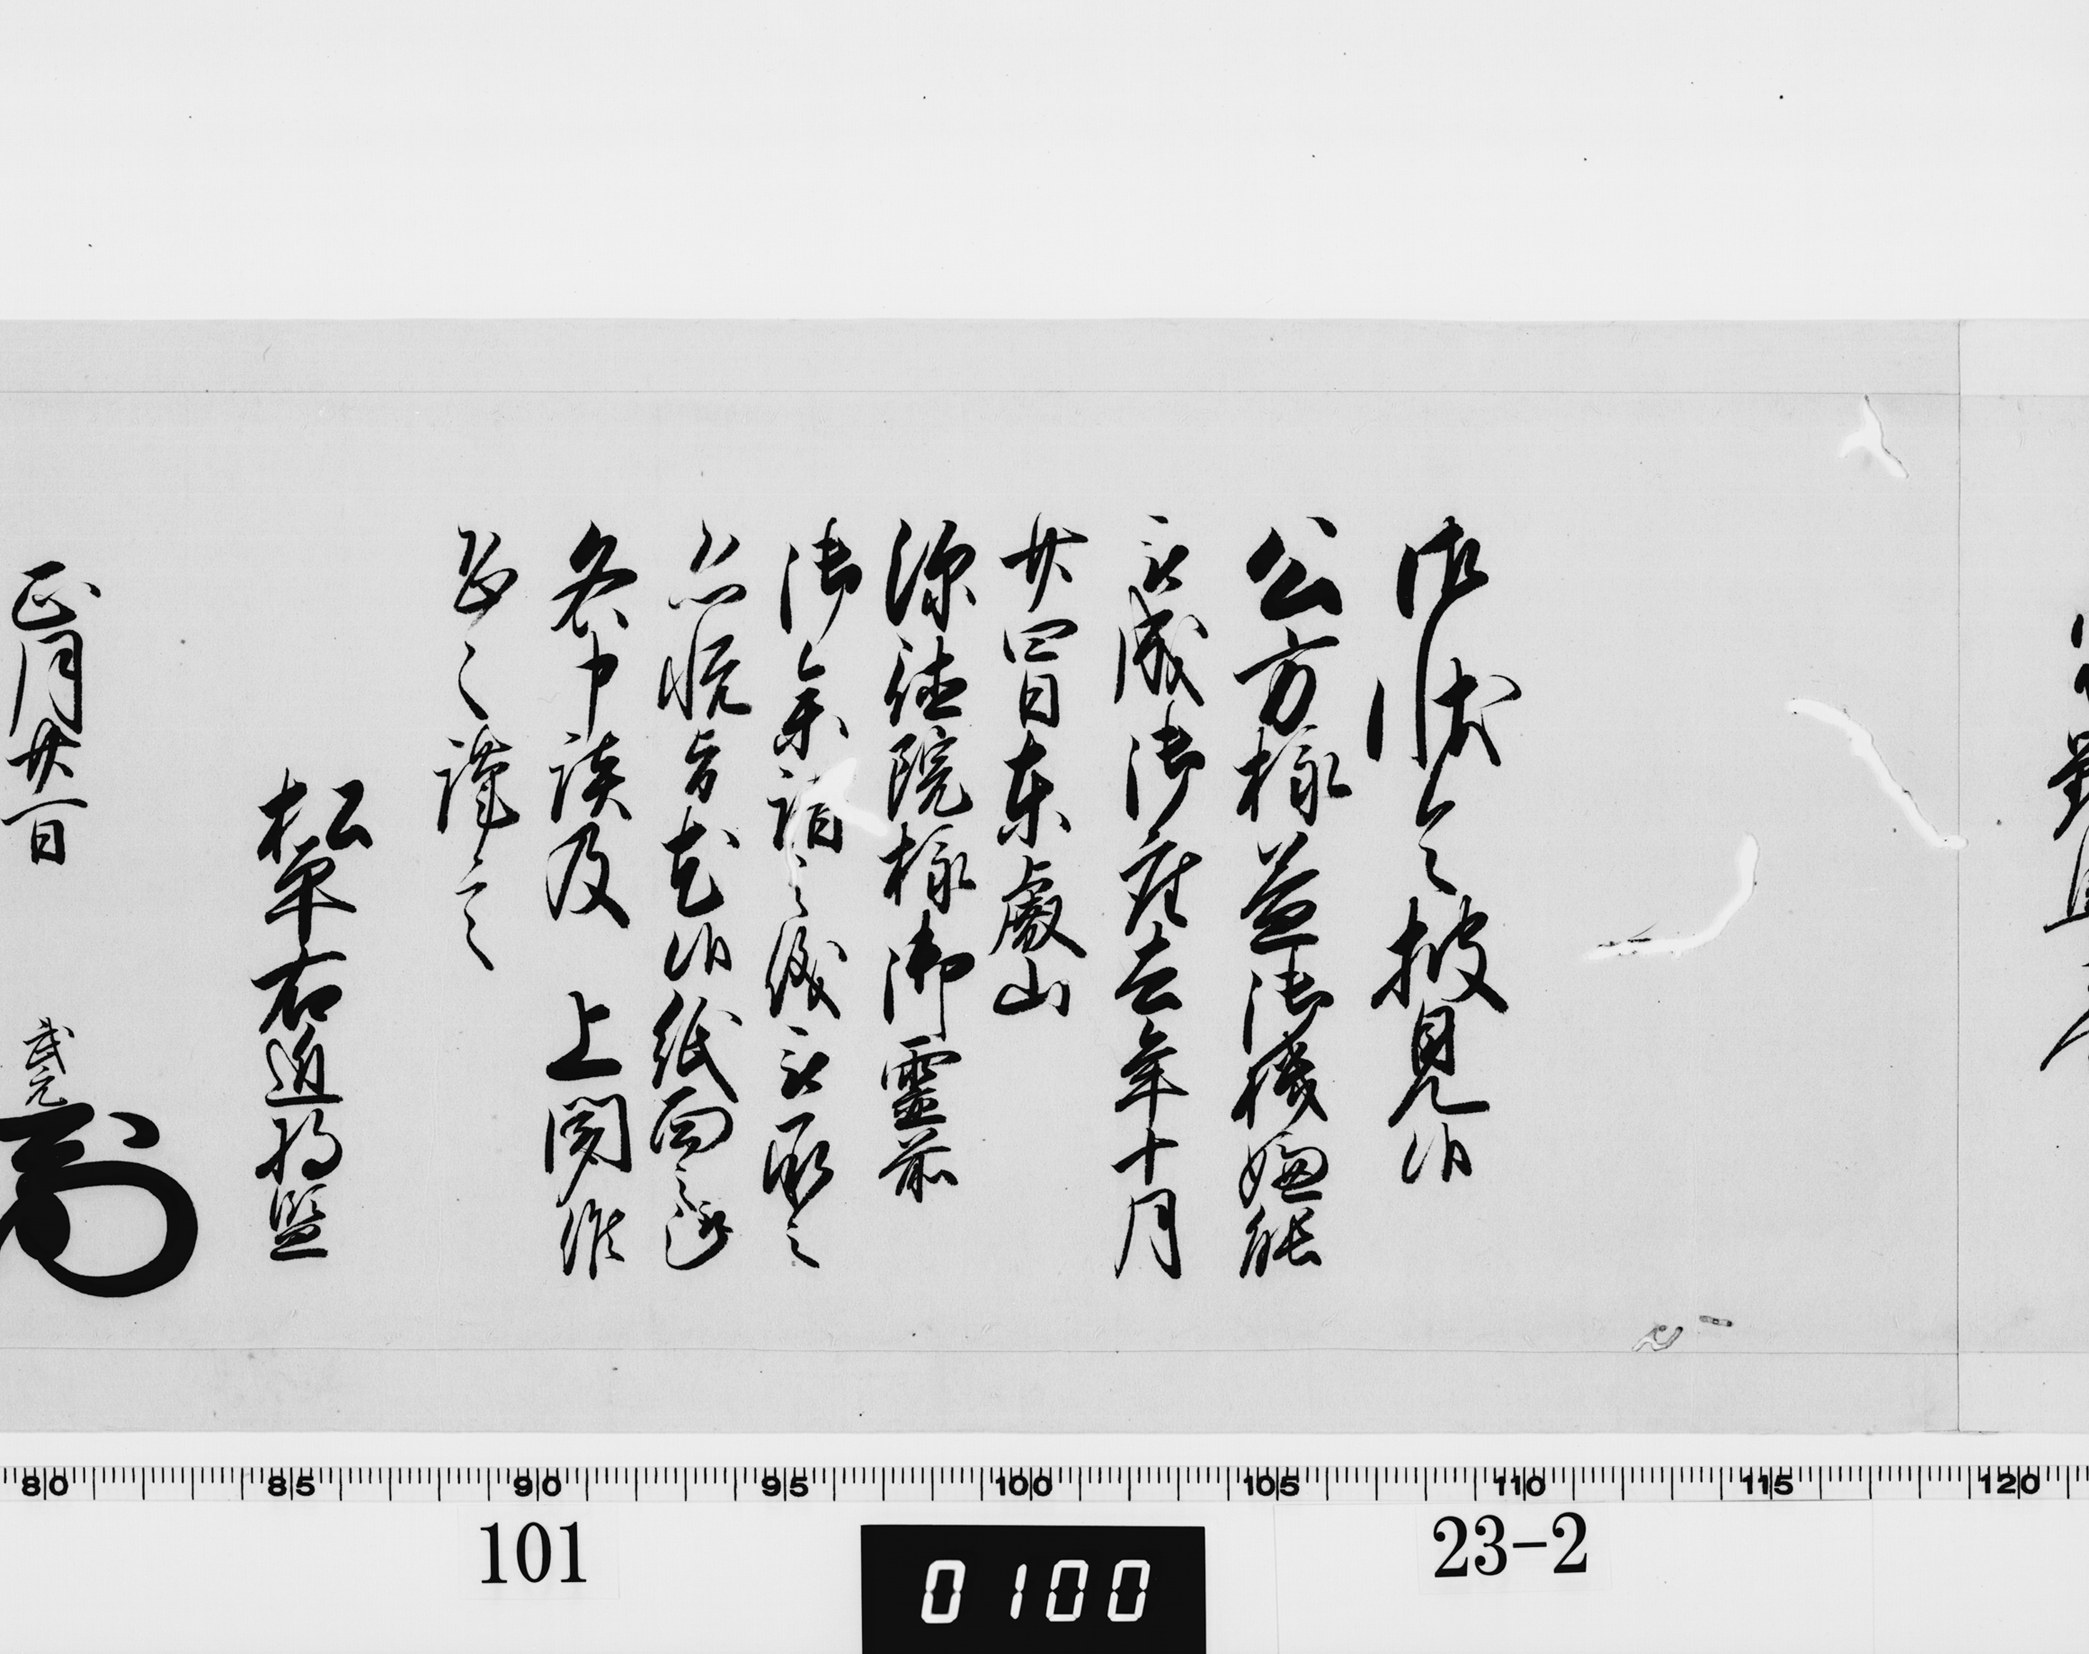 御状令披見候
公方様益御機嫌能
被成御座去年十月
廿四日東叡山
深徳院様御霊前
御参詣之儀被承之
恐悦旨尤候紙面之趣
各申談及 上聞候
恐々謹言
松平右近将監
正月廿一日
武元
80 85 90 95 100 105 110 115 120
101
0100
23-2